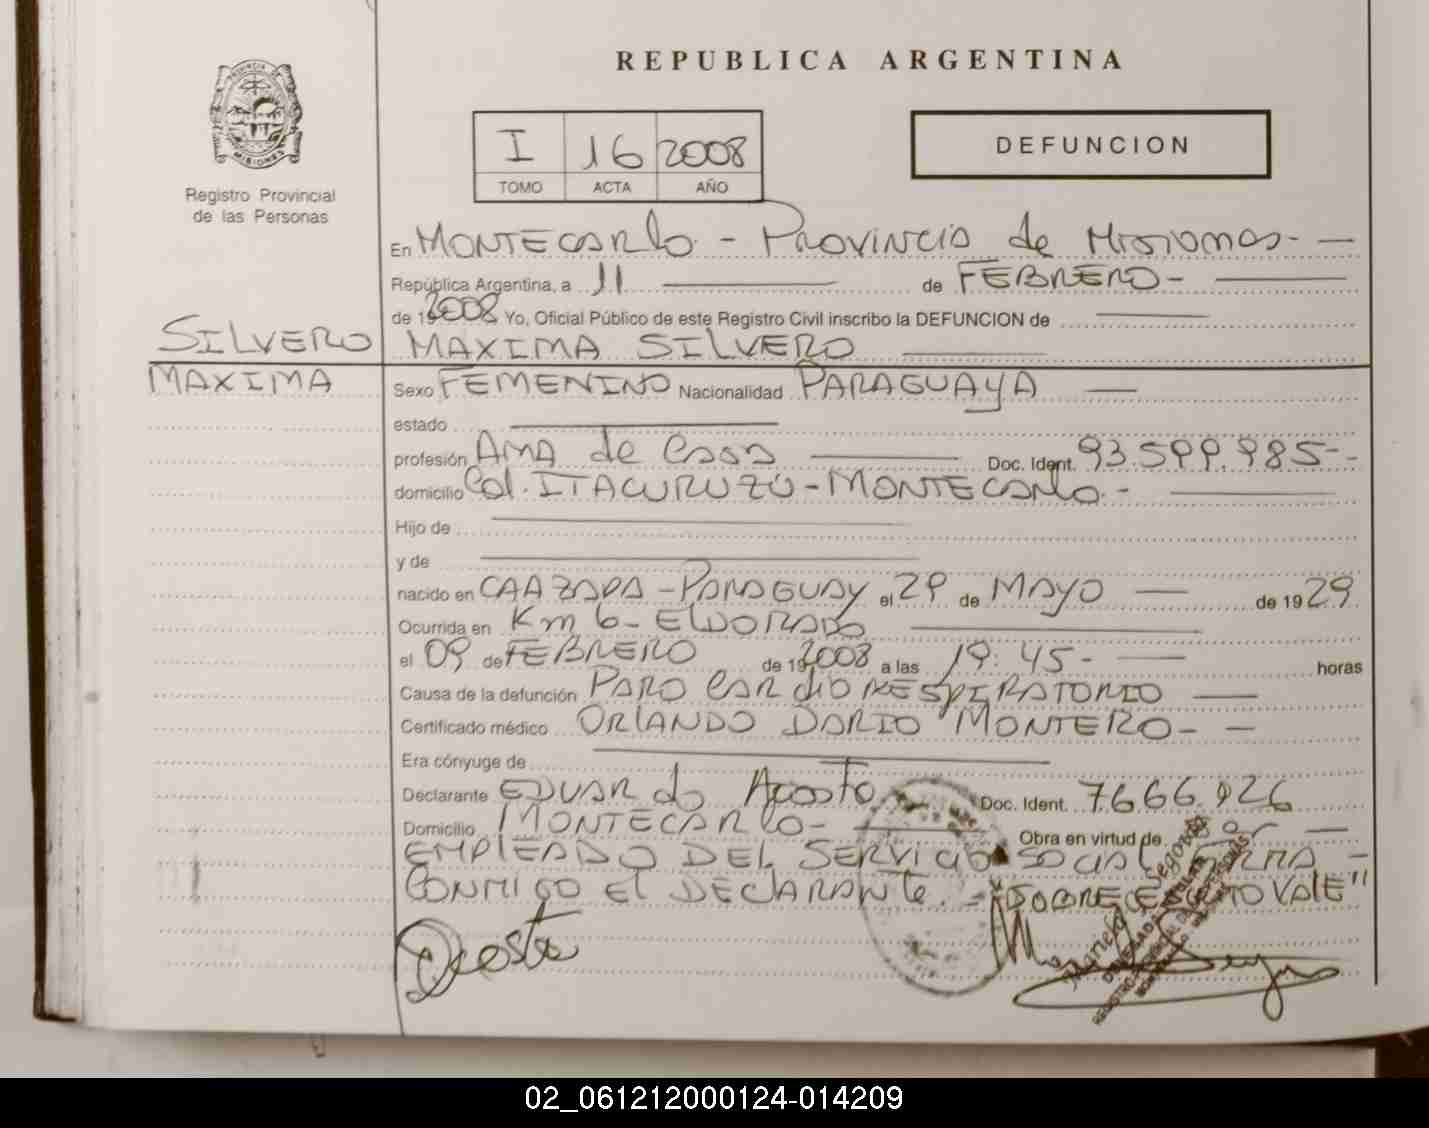 REPUBLICA ARGENTINA
PROVINCIA DE
MISIONES
Registro Provincial
de las Personas
I 16 2008
TOMO ACTA AÑO
DEFUNCION
En MONTECARLO - PROVINCIA de MISIONES. -
República Argentina, a 11 de FEBRERO -
de 19 2008 Yo, Oficial Público de este Registro Civil inscribo la DEFUNCION de
SILVERO MAXIMA SILVERO
MAXIMA Sexo FEMENINO Nacionalidad PARAGUAYA
estado
profesión AMA de CASA Doc. Ident. 93.599.985-
domicilio Col. ITACURUZU - MONTECARLO. -
Hijo de
y de
nacido en CAAZAPA - PARAGUAY el 29 de MAYO de 1929
Ocurrida en Km 6 - ELDORADO
el 09 de FEBRERO de 19 2008 a las 19:45 - horas
Causa de la defunción PARO CARDIO RESPIRATORIO
Certificado médico ORLANDO DARIO MONTERO - -
Era cónyuge de
Declarante EDUARDO Acosta Doc. Ident. 7.666.926
Domicilio MONTECARLO - Obra en virtud de ser
EMPLEADO DEL SERVICIO SOCIAL FIRMA -
CONMIGO EL DECLARANTE. - "SOBRE VALE"
Acosta
02_061212000124-014209